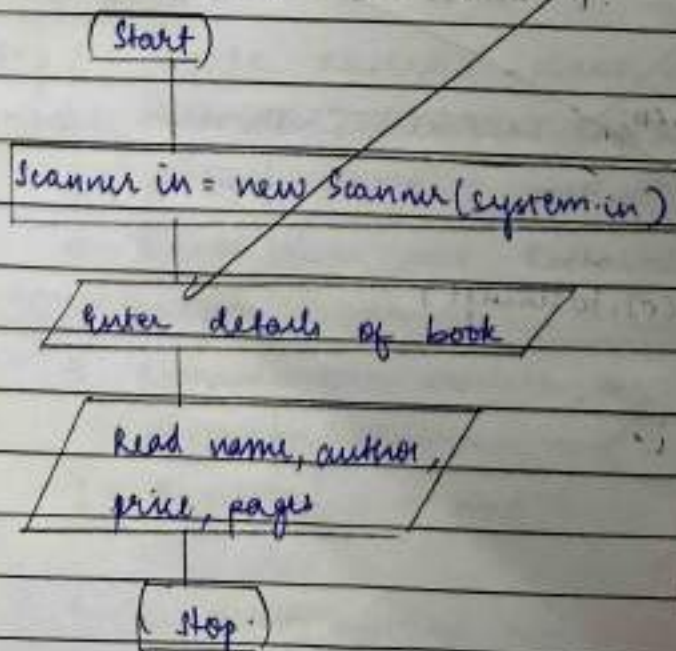 Start
Scanner in = new Scanner(system.in)
Enter details of book
Read name, author,
price, pages
Stop.